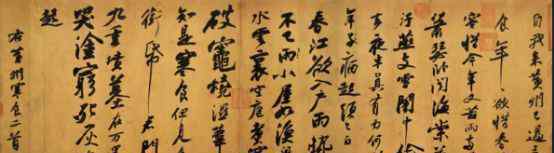 自我來黃州已過三
食年〻欲惜春
容惜今年又苦雨兩
蕭瑟臥聞海棠花
汙燕支雪闇中偷
夜半真有力何殊
年子病起頭已白
春江欲入戶雨勢
不已雨小屋如漁
水雲裏空庖煮寒
破竈燒濕葦
知是寒食但見烏
銜帋君門
九重墳墓在万里
哭塗窮死灰
起
右黃州寒食二首